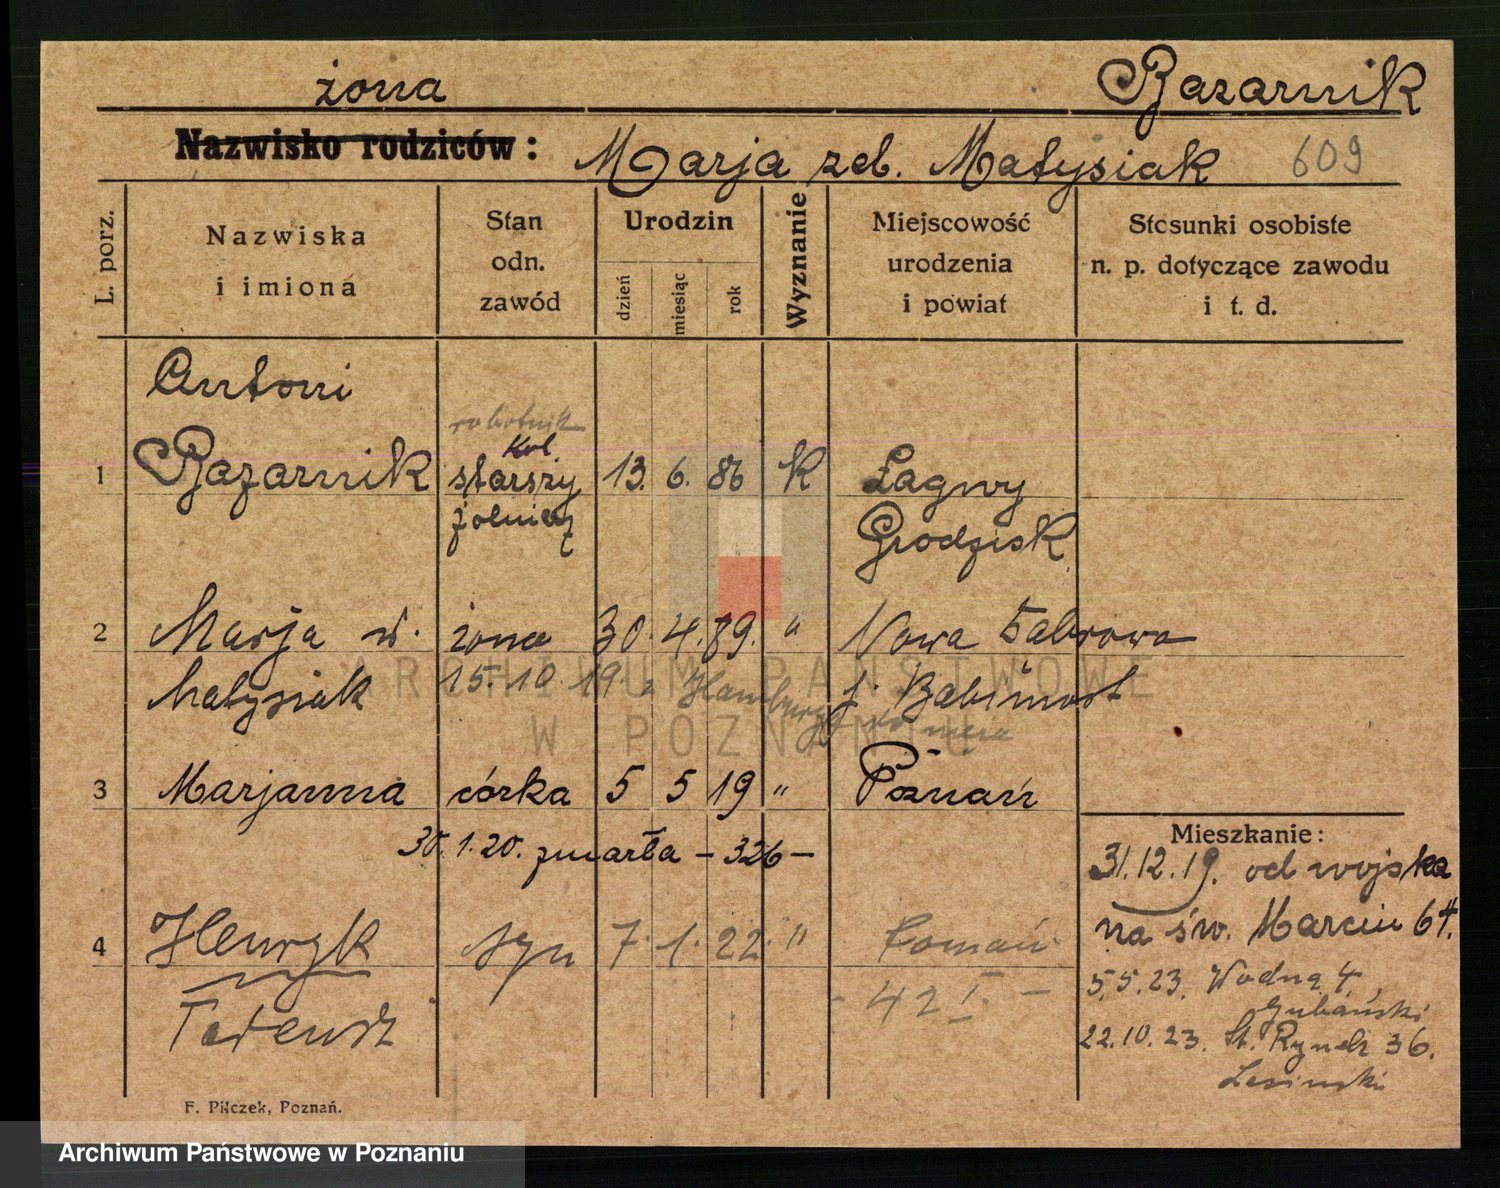 żona
Bazarnik
Nazwisko rodziców:
Marja zeb. Matysiak
609
L. porz.
Nazwiska
i imiona
Stan
odn.
zawód
Urodzin
dzień
miesiąc
rok
Wyznanie
Miejscowość
urodzenia
i powiat
Stosunki osobiste
n. p. dotyczące zawodu
i t. d.
Antoni
robotnik
kol.
1 Bazarnik starszy 13. 6. 86 K Łagwy
żołnierz Grodzisk
2 Marja w. żona 30. 4. 89. " Nowa Dąbrowa
Matysiak 15.10.19. z Hamburga do męża p. Babimost
3 Marjanna córka 5 5 19 " Poznań
30.1.20. zmarła – 326 –
Mieszkanie:
31.12.19. od wojska
na św. Marcin 64.
4 Henryk syn 7. 1. 22. " Poznań
- 42 I. -
Tadeusz
5.5.23. Wodna 4,
22.10.23. St. Rynek 36.
Lesinski
F. Pilczek, Poznań.
ARCHIWUM PAŃSTWOWE
W POZNANIU
Archiwum Państwowe w Poznaniu